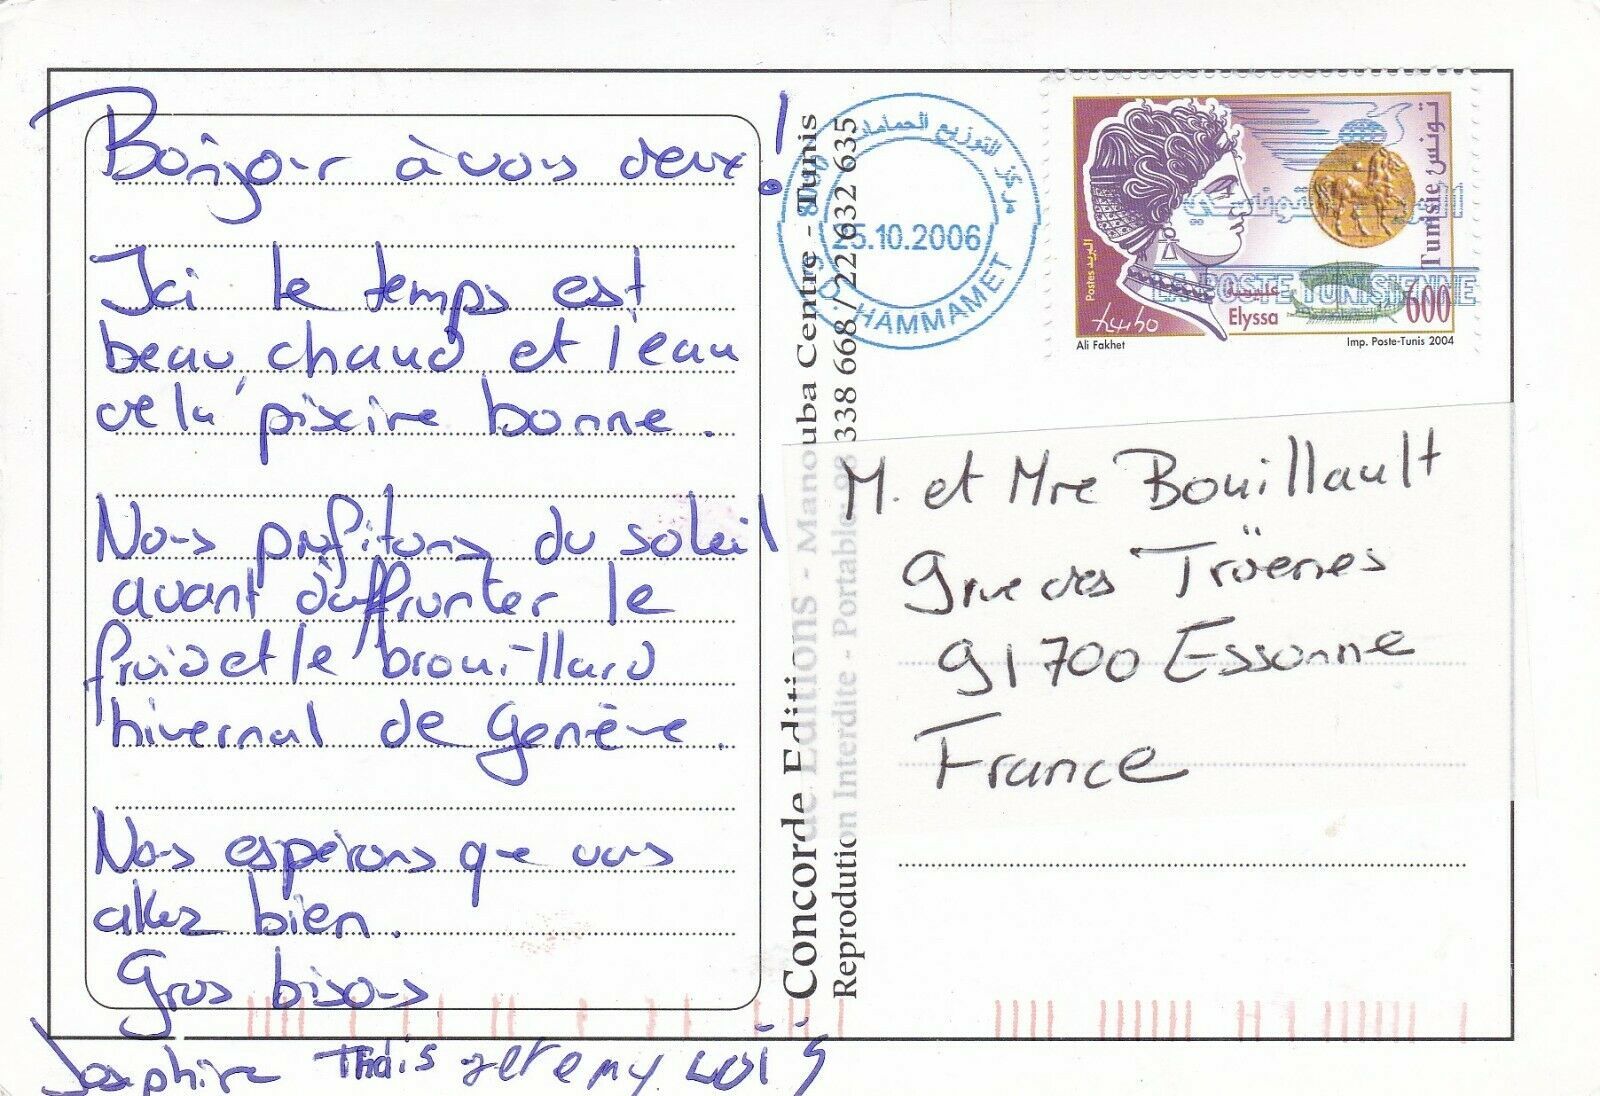 Bonjour à vous deux !
Ici le temps est
beau, chaud et l'eau
de la piscine bonne.
Nous profitons du soleil
avant d'affronter le
froid et le brouillard
hivernal de Genève.
Nous espérons que vous
allez bien.
Gros bisous
Joséphine Thaïs Jeremy
Concorde Editions - Manouba Centre - Tunis
Reprodution Interdite - Portable: 98 338 668 / 22 632 635
مركز التوزيع الحمامات
8050
25.10.2006
HAMMAMET
تونس Tunisie
البريد Postes
LA POSTE TUNISIENNE
عليسة
Elyssa
600
Ali Fakhet
Imp. Poste-Tunis 2004
M. et Mre Bouillault
9 rue des Tröenes
91700 Essonne
France